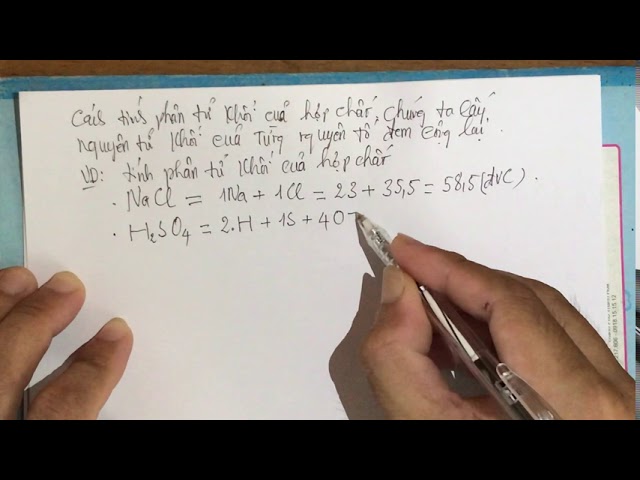 Cách tính phân tử khối của hợp chất, chúng ta lấy
nguyên tử khối của từng nguyên tố đem cộng lại.
VD: tính phân tử khối của hợp chất
. NaCl = 1Na + 1Cl = 23 + 35,5 = 58,5 (đvC).
. H₂SO₄ = 2.H + 1S + 4O